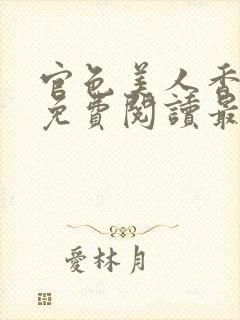 官色美人香
免費閱讀最
愛林月